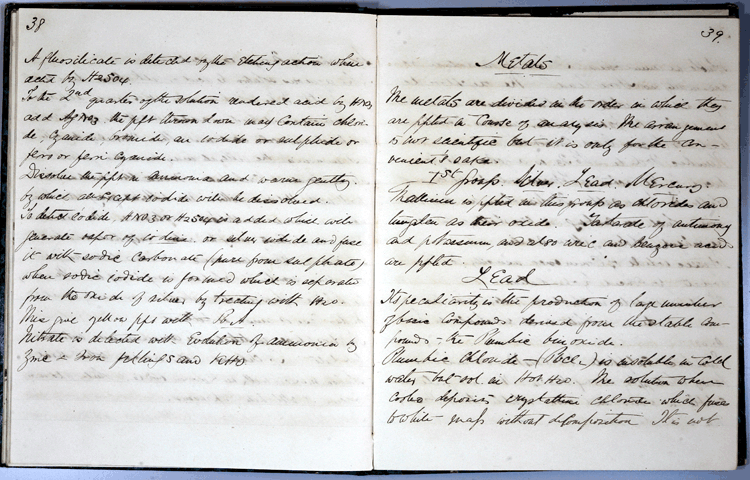 38
A fluosilicate is detected by the etching action when
acted by H2SO4
To the 2nd quarter of the solution rendered acid by HNO3
add AgNO3 the ppt thrown down may contain chlori-
de, cyanide, bromide, an iodide or sulphide or
ferro or ferri cyanide.
Dissolve the ppt in ammonia and warm gently.
by which all except iodide will be dissolved.
To detect iodide HNO3 or H2SO4 is added which will
generate vapor of iodine. or silver iodide and fuse
it with sodic carbonate (pure from sulphate)
when sodic iodide is formed which is separated
from the oxide of silver by treating with H2O.
This give yellow ppt with
Nitrate is detected with Evolution of ammonia by
Zinc & Iron and KHO
39.
Metals
The metals are divided in the order in which they
are ppted in Course of analysis. The arrangement
is not scientific but it is only for the con-
venience's sake.
1st Group. Silver, Lead, Mercury.
Thallium is ppted in this group as chlorides and
tungsten as their oxide. Tartarate of antimony
and potassium and also uric and benzoic acid
are ppted
Lead
Its peculiarity is the production of large number
of basic compounds derived from the stable com-
pounds - the Plumbic
Plumbic Chloride - is insoluble in cold
water but sol. in Hot H2O. The solution when
cooled deposits crystalline chloride which fuses
to white mass without decomposition It is not